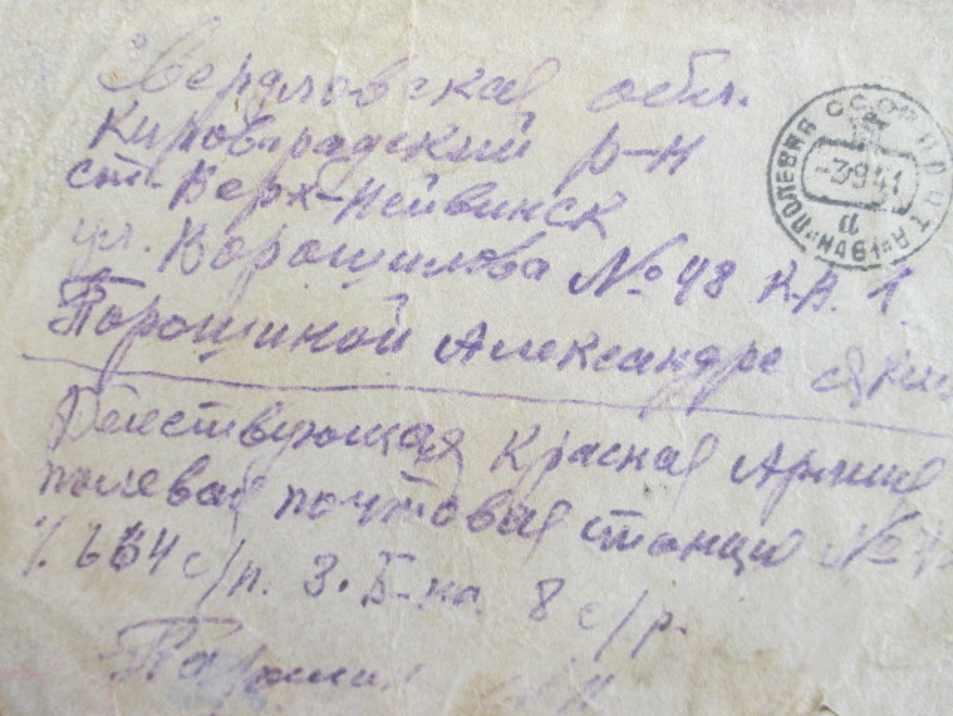 Свердловская обл.
Кировградский р-н
ст. Верх-Нейвинск
ул. Ворошилова № 48 кв. 1.
Порошиной Александре
Действующая Красная Армия
полевая почтовая станция №
664 с/п. 3. Б-на 8 с/р.
Порошин
ПОЛЕВАЯ ПОЧТА
СССР
-3941